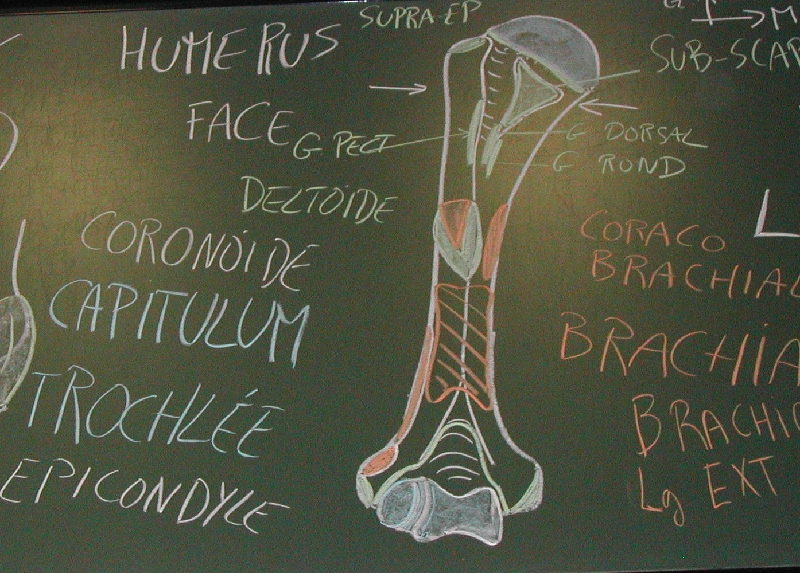 SUPRA-EP
HUMERUS
SUB-SCAP
FACE
G. PECT
G DORSAL
G ROND
DELTOÏDE
CORONOÏDE
CORACO
BRACHIAL
CAPITULUM
BRACHIA
TROCHLÉE
BRACHIO
EPICONDYLE
Lg EXT